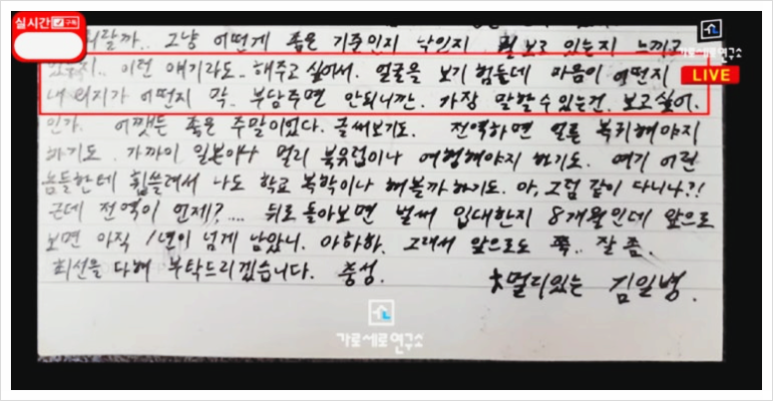 실시간 구독
뭐랄까.. 그냥 어떻게 좋은 기준인지 낙인지 뭘 보고 있는지 느끼고
있는지.. 이런 얘기라도.. 해주고 싶어서. 얼굴을 보기 힘든데 마음이 어떤지
내 의지가 어떤지 막.. 부담주면 안되니깐. 가장 말할수 있는건. 보고싶어.
인가. 어쨋든 좋은 주말이었다. 글써보기도. 전역하면 얼른 복귀해야지
하기도. 가까이 일본이나 멀리 북유럽이나 여행해야지 하기도. 여기 어린
놈들한테 휩쓸려서 나도 학교 복학이나 해볼까 하기도. 아, 그럼 같이 다니나?!
근데 전역이 언제?.... 뒤로 돌아보면 벌써 입대한지 8개월인데 앞으로
보면 아직 1년이 넘게 남았니. 아하하. 그래서 앞으로도 쭉.. 잘 좀.
최선을 다해 부탁드리겠습니다. 충성.
멀리있는 김일병.
가로세로연구소
LIVE
가로세로연구소